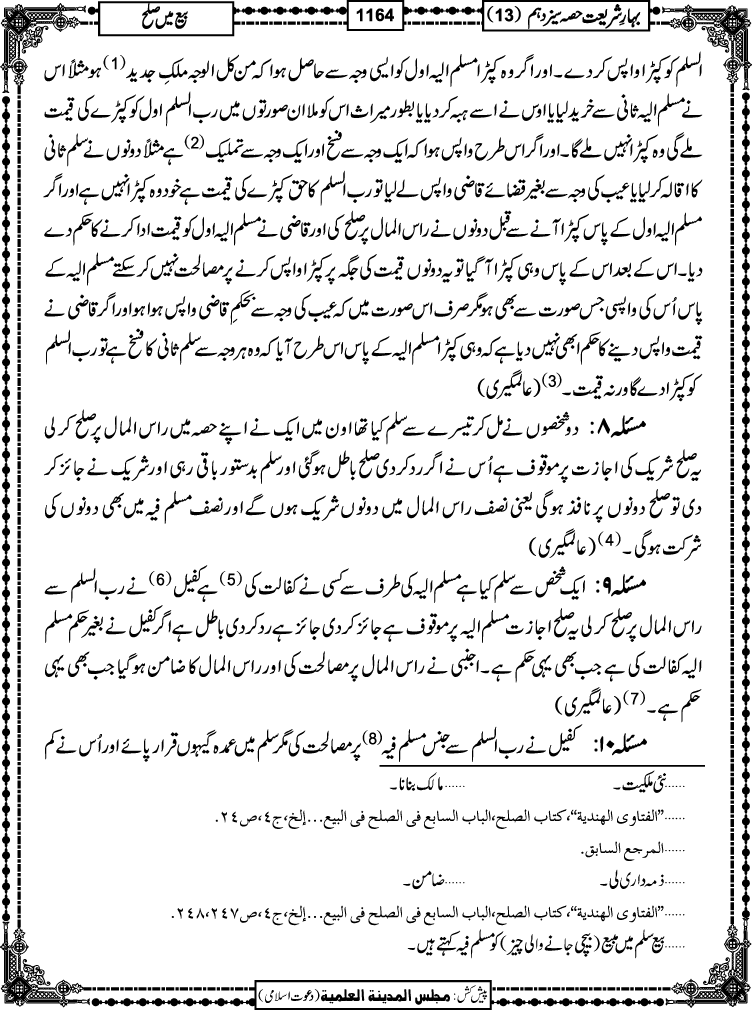 بہارِ شریعت حصہ سیزدہم (13)
1164
بیع میں صلح
السلم کو کپڑا واپس کردے۔ اور اگر وہ کپڑا مسلم الیہ اول کو ایسی وجہ سے حاصل ہوا کہ من کل الوجہ ملکِ جدید (1) ہو مثلاً اس
نے مسلم الیہ ثانی سے خرید لیا یا اوس نے اسے ہبہ کردیا یا بطور میراث اس کو ملا ان صورتوں میں رب السلم اول کو کپڑے کی قیمت
ملے گی وہ کپڑا نہیں ملے گا۔ اور اگر اس طرح واپس ہوا کہ ایک وجہ سے فسخ اور ایک وجہ سے تملیک (2) ہے مثلاً دونوں نے سلم ثانی
کا اقالہ کرلیا یا عیب کی وجہ سے بغیر قضائے قاضی واپس لے لیا تو رب السلم کا حق کپڑے کی قیمت ہے خود وہ کپڑا نہیں ہے اور اگر
مسلم الیہ اول کے پاس کپڑا آنے سے قبل دونوں نے راس المال پر صلح کی اور قاضی نے مسلم الیہ اول کو قیمت ادا کرنے کا حکم دے
دیا۔ اس کے بعد اس کے پاس وہی کپڑا آگیا تو یہ دونوں قیمت کی جگہ پر کپڑا واپس کرنے پر مصالحت نہیں کرسکتے مسلم الیہ کے
پاس اُس کی واپسی جس صورت سے بھی ہو مگر صرف اس صورت میں کہ عیب کی وجہ سے بحکمِ قاضی واپس ہوا ہو اور اگر قاضی نے
قیمت واپس دینے کا حکم ابھی نہیں دیا ہے کہ وہی کپڑا مسلم الیہ کے پاس اس طرح آیا کہ وہ ہر وجہ سے سلم ثانی کا فسخ ہے تو رب السلم
کو کپڑا دے گا ورنہ قیمت۔ (3) (عالمگیری)
مسئلہ ۸: دو شخصوں نے مل کر تیسرے سے سلم کیا تھا اون میں ایک نے اپنے حصہ میں راس المال پر صلح کرلی
یہ صلح شریک کی اجازت پر موقوف ہے اُس نے اگر رد کردی صلح باطل ہوگئی اور سلم بدستور باقی رہی اور شریک نے جائز کر
دی تو صلح دونوں پر نافذ ہوگی یعنی نصف راس المال میں دونوں شریک ہوں گے اور نصف مسلم فیہ میں بھی دونوں کی
شرکت ہوگی۔ (4) (عالمگیری)
مسئلہ ۹: ایک شخص سے سلم کیا ہے مسلم الیہ کی طرف سے کسی نے کفالت کی (5) ہے کفیل (6) نے رب السلم سے
راس المال پر صلح کرلی یہ صلح اجازت مسلم الیہ پر موقوف ہے جائز کردی جائز ہے رد کردی باطل ہے اگر کفیل نے بغیر حکم مسلم
الیہ کفالت کی ہے جب بھی یہی حکم ہے۔ اجنبی نے راس المال پر مصالحت کی اور راس المال کا ضامن ہوگیا جب بھی یہی
حکم ہے۔ (7) (عالمگیری)
مسئلہ ۱۰: کفیل نے رب السلم سے جنس مسلم فیہ (8) پر مصالحت کی مگر سلم میں عمدہ گیہوں قرار پائے اور اُس نے کم
......نئی ملکیت۔ ......مالک بنانا۔
......"الفتاوی الھندیة"، کتاب الصلح، الباب السابع فی الصلح فی البیع...إلخ، ج٤، ص٢٤.
......المرجع السابق.
......ذمہ داری لی۔ ......ضامن۔
......"الفتاوی الھندیة"، کتاب الصلح، الباب السابع فی الصلح فی البیع...إلخ، ج٤، ص٢٤٧، ٢٤٨.
......بیع سلم میں مبیع (بیچی جانے والی چیز) کو مسلم فیہ کہتے ہیں۔
پیش کش: مجلس المدینة العلمیة (دعوتِ اسلامی)